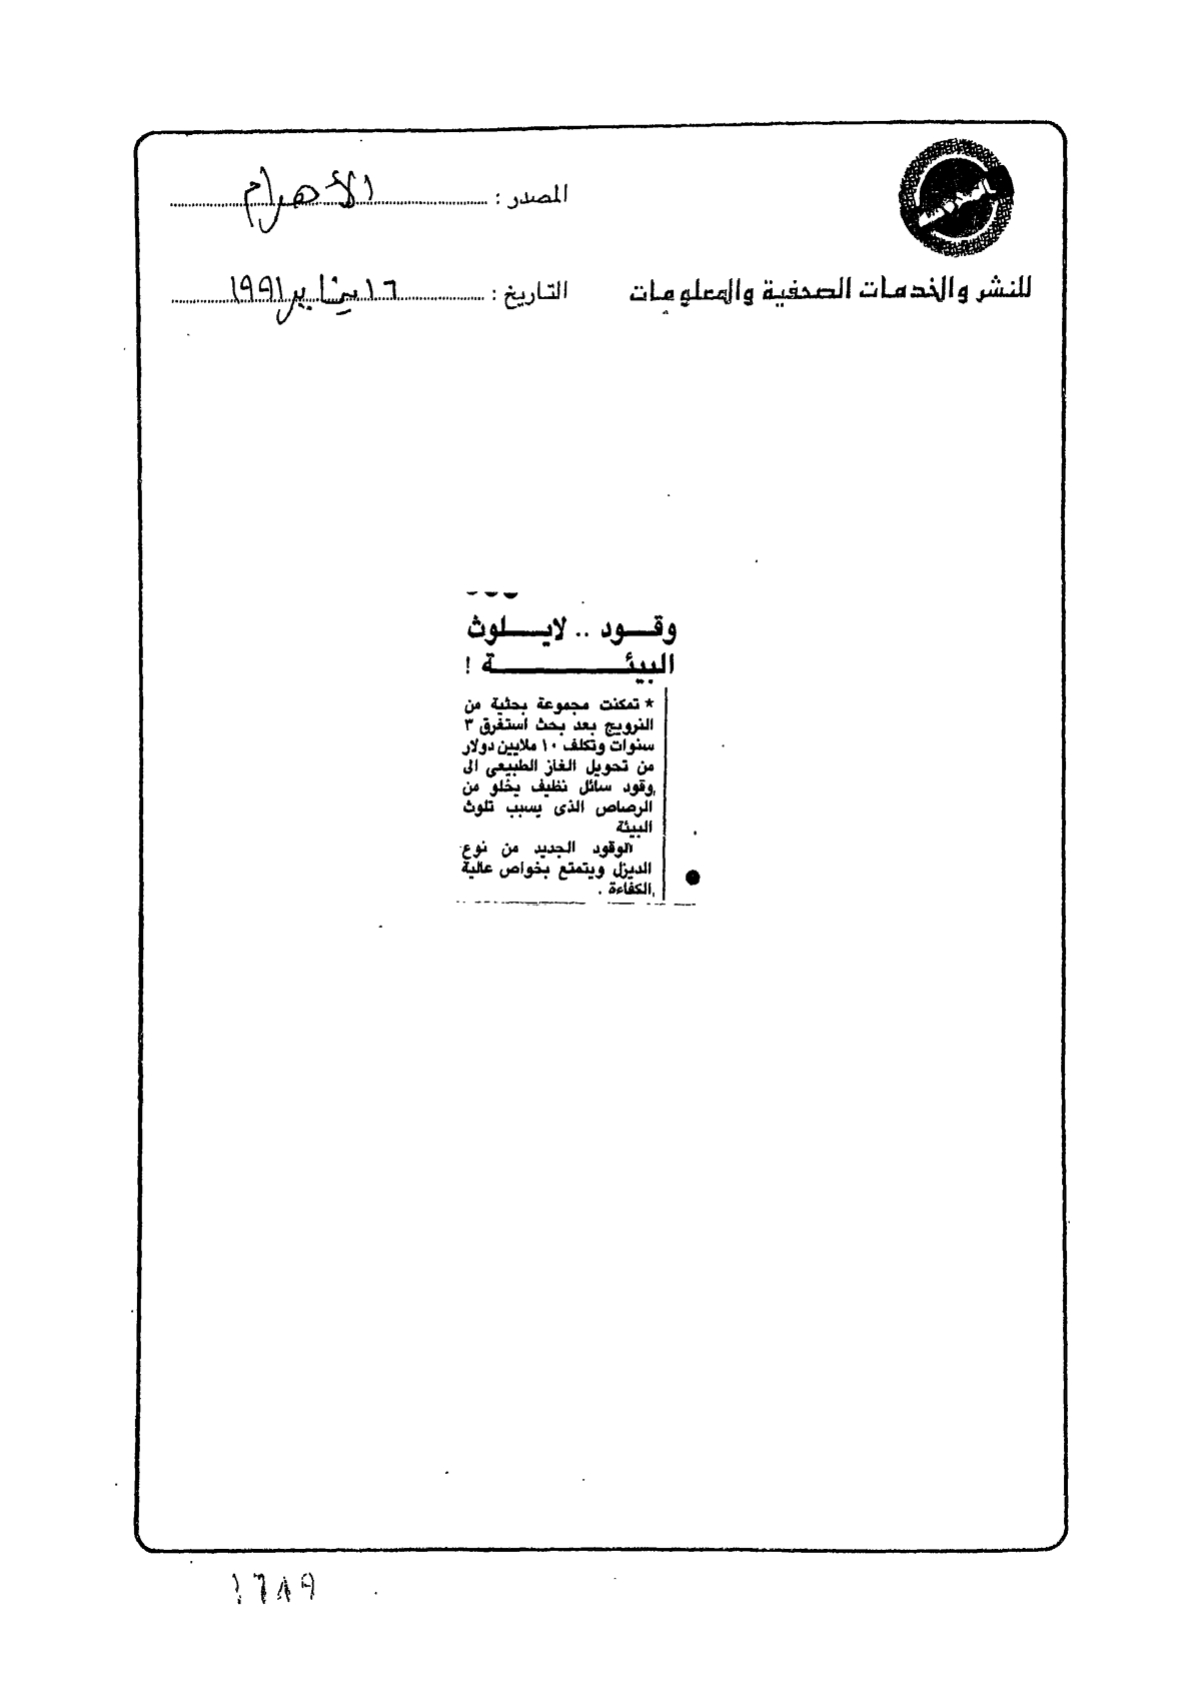 المصدر : الأهرام
للنشر والخدمات الصحفية والمعلومات
التاريخ : ١٦ يناير ١٩٩١
وقود .. لايلوث
البيئة !
* تمكنت مجموعة بحثية من
النرويج بعد بحث استغرق ٣
سنوات وتكلف ١٠ ملايين دولار
من تحويل الغاز الطبيعى الى
وقود سائل نظيف يخلو من
الرصاص الذى يسبب تلوث
البيئة
الوقود الجديد من نوع
الديزل ويتمتع بخواص عالية
الكفاءة .